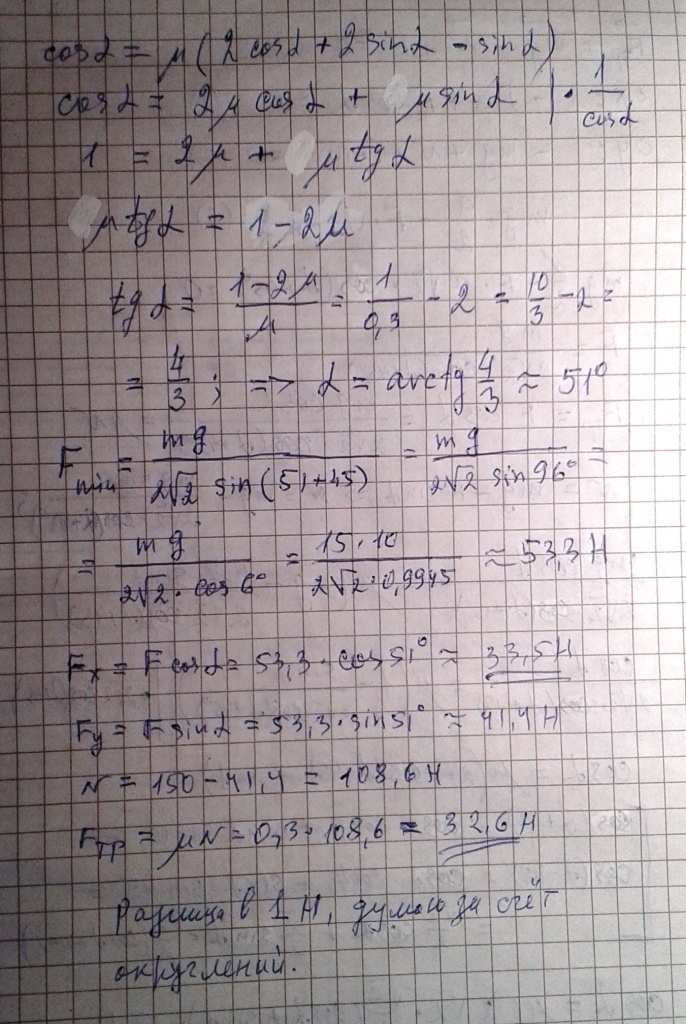 cosα = μ(2cosα + 2sinα - sinα)
cosα = 2μ cosα + μ sinα | · 1/cosα
1 = 2μ + μ tgα
μtgα = 1 - 2μ
tgα = (1-2μ)/μ = 1/0,3 - 2 = 10/3 - 2 =
= 4/3 ; => α = arctg 4/3 ≈ 51°
Fmin = mg/(2√2 sin(51+45)) = mg/(2√2 sin96°) =
= mg/(2√2 · cos6°) = 15·10/(2√2·0,9945) ≈ 53,3Н
Fx = Fcosα = 53,3 · cos51° ≈ 33,5Н
Fy = Fsinα = 53,3·sin51° ≈ 41,4Н
N = 150 - 41,4 = 108,6Н
Fтр = μN = 0,3·108,6 = 32,6Н
Разница в 1Н, думаю за счёт
округлений.